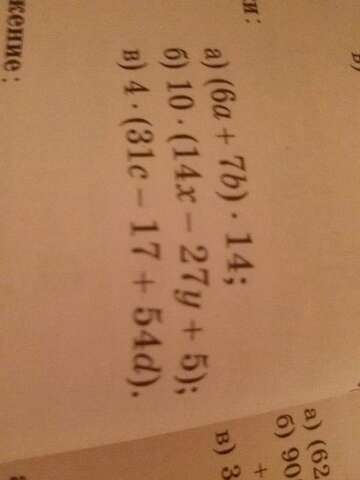 а) (6a + 7b) · 14;
б) 10 · (14x − 27y + 5);
в) 4 · (31c − 17 + 54d).
а) (62
б) 90
в) 3
+